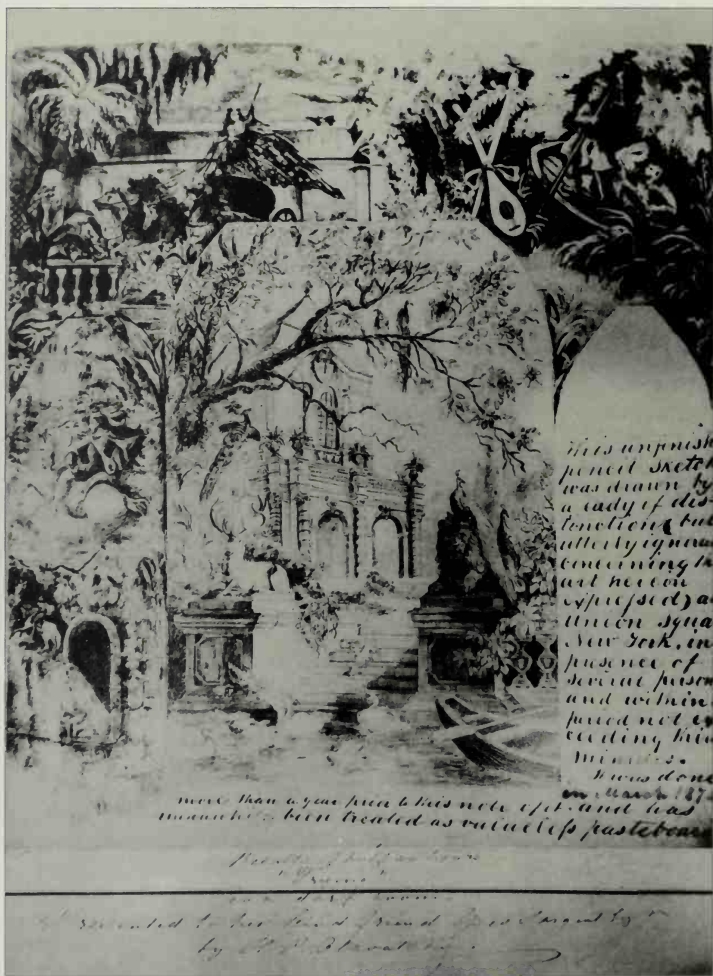 This unfinish
pencil sketch
was drawn by
a lady of dis-
tonction (but
utterly ignora
concerning th
art hereon
expressed) a
Union Squa
New York, in
presence of
several person
and within
period not ex
ceeding thir
minutes.
It was done
in March 187
more than a year prior to this note and has
meanwhile been treated as valueless pasteboar
Result of half an hour's
in a dark room.
Presented to her friend
by